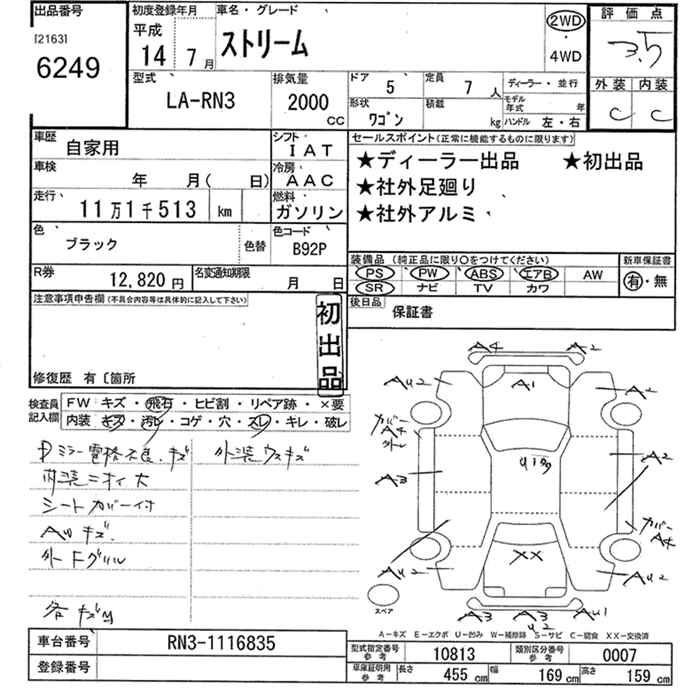 出品番号
[2163]
6249
初度登録年月
平成
14 7月
車名・グレード
ストリーム
2WD
・
4WD
評価点
3.5
外装 内装
C C
型式
LA-RN3
排気量
2000 CC
ドア 5
定員 7人
ディーラー・並行
形状 ワゴン
積載 kg
モデル年式 年
ハンドル 左・右
車歴 自家用
シフト IAT
車検 年 月( 日)
冷房 AAC
走行 11万1千513 km
燃料 ガソリン
色 ブラック 色替
色コード B92P
R券 12,820円
名変通知期限 月 日
セールスポイント(正常に機能するものに限ります)
★ディーラー出品 ★初出品
★社外足廻り
★社外アルミ
装備品 (純正品に限り○をつけてください)
PS PW ABS エアB AW
SR ナビ TV カワ
新車保証書
有・無
後日品 保証書
注意事項申告欄(不具合内容等は具体的に記入して下さい)
初出品
修復歴 有〔箇所
検査員記入欄
FW キズ・飛石・ヒビ割・リペア跡・×要
内装 キズ・汚レ・コゲ・穴・スレ・キレ・破レ
Pミラー電格不良.キズ
外装ウスキズ
内装ニオイ大
シートカバー付
AWキズ
外Fグリル
各キズ凹
A4 A2
AU2 A1 A2
カバー
A4
外レ
A3
A2
カバー
A4
AU2 XX AU2
A3 A3 AU1
U2
スペア
A-キズ E-エクボ U-凹み W-補修跡 S-サビ C-腐食 XX-交換済
車台番号 RN3-1116835
登録番号
型式指定番号 参考 10813
類別区分番号 参考 0007
車庫証明用 参考 長さ 455 cm 幅 169 cm 高さ 159 cm